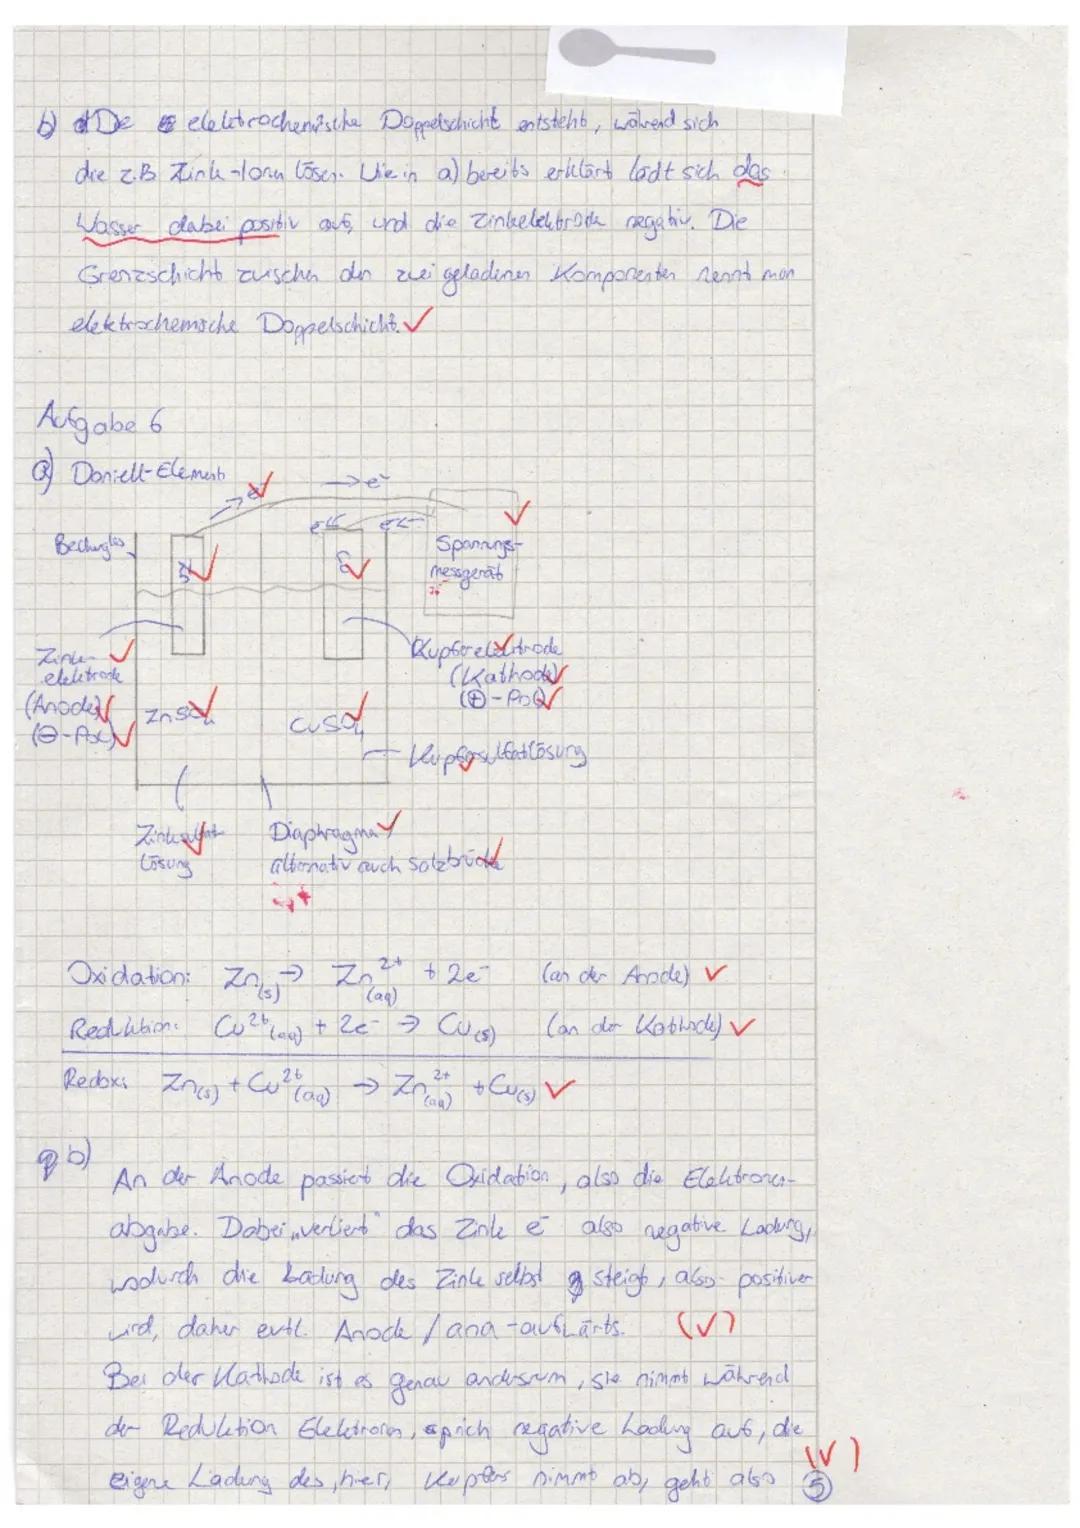 b) Die elektrochemische Doppelschicht entsteht, während sich
die z.B Zink-Ionen lösen. Wie in a) bereits erklärt lädt sich das
Wasser dabei positiv auf, und die Zinkelektrode negativ. Die
Grenzschicht zwischen den zwei geladenen Komponenten nennt man
elektrochemische Doppelschicht. ✓
Aufgabe 6
a) Daniell-Element
→ e⁻
→ e⁻
e⁻ e⁻
Becherglas
Zn
Cu
Spannungs-
messgerät
Zink-
elektrode
(Anode)
(⊖-Pol)
Kupferelektrode
(Kathode)
(⊕-Pol)
ZnSO₄
CuSO₄
Kupfersulfatlösung
Zinksulfat-
lösung
Diaphragma
alternativ auch Salzbrücke
Oxidation: Zn(s) → Zn²⁺(aq) + 2e⁻ (an der Anode) ✓
Reduktion: Cu²⁺(aq) + 2e⁻ → Cu(s) (an der Kathode) ✓
Redox: Zn(s) + Cu²⁺(aq) → Zn²⁺(aq) + Cu(s) ✓
b)
An der Anode passiert die Oxidation, also die Elektronen-
abgabe. Dabei „verliert" das Zink e⁻ also negative Ladung,
wodurch die Ladung des Zink selbst steigt, also positiver
wird, daher evtl. Anode / ana - aufwärts. (✓)
Bei der Kathode ist es genau andersrum, sie nimmt während
der Reduktion Elektronen, sprich negative Ladung auf, die
eigene Ladung des, hier, Kupfers nimmt ab, geht also
(✓)
5